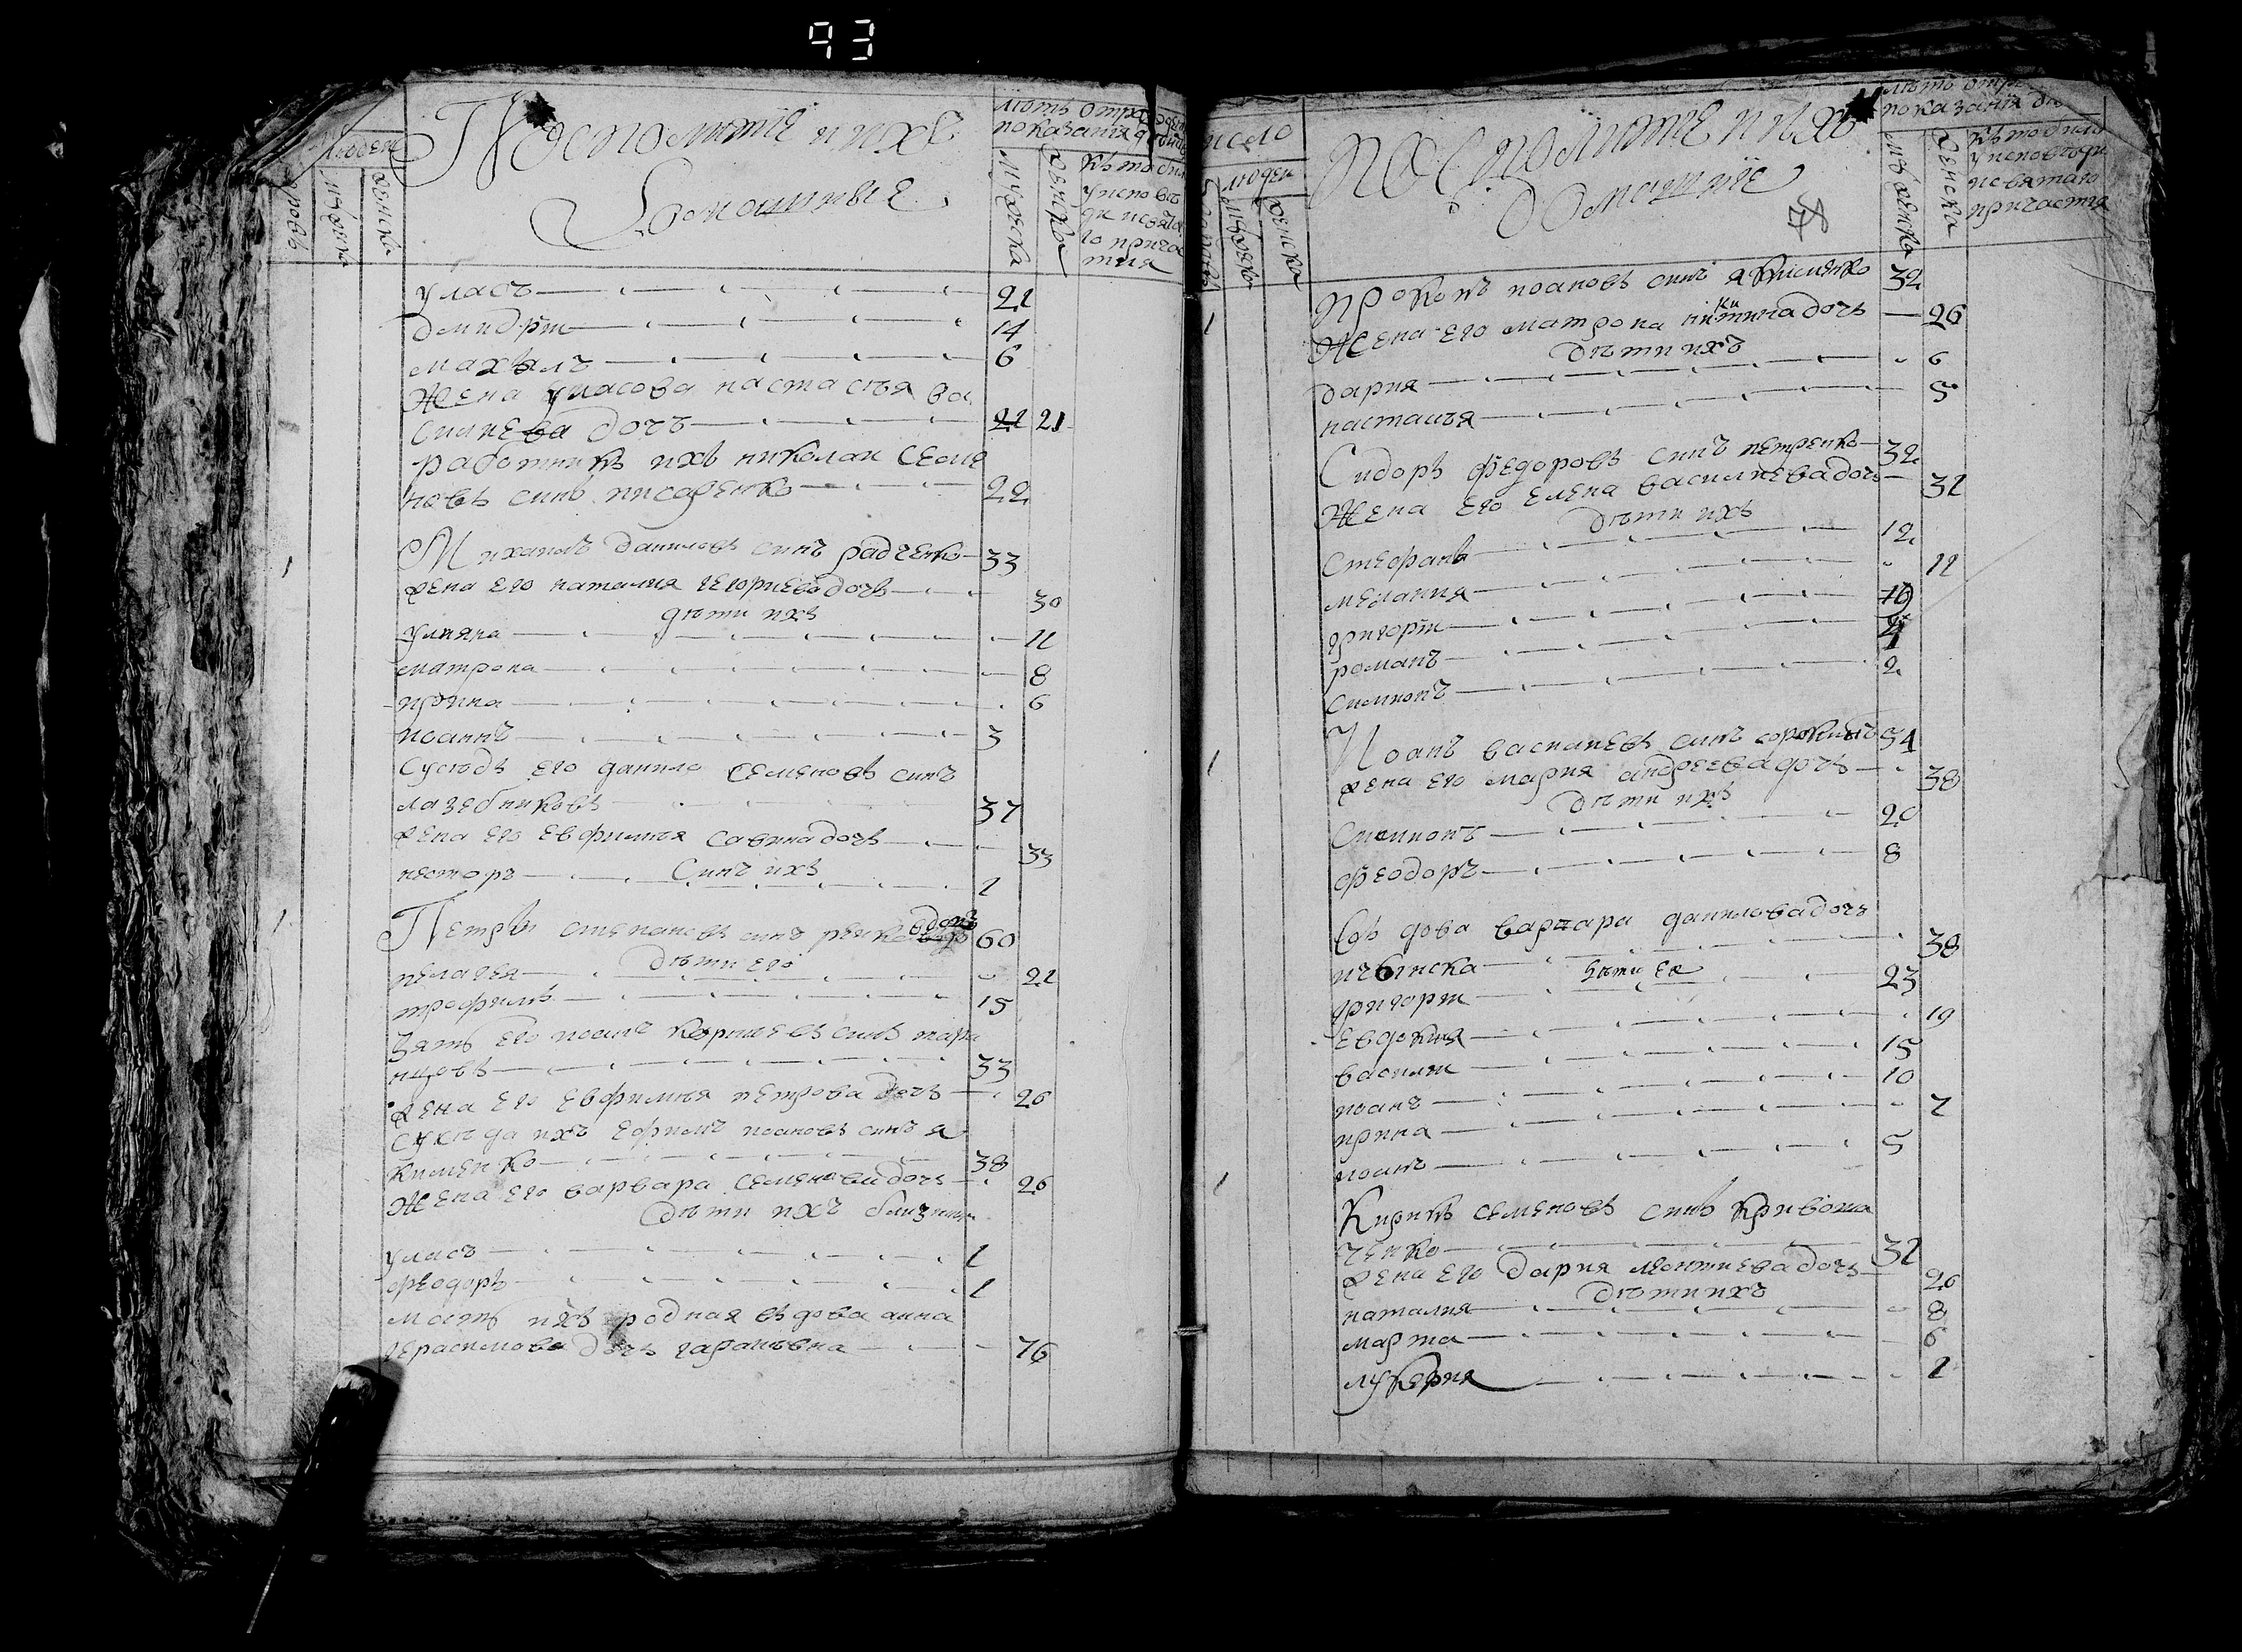 93
Посполитые и ихъ
Домашние
людей
мужеска
женска
лѣтъ от рождения
показания
мужеска
женска
кто былъ
у исповѣ
ди и свята
го прича
стия
Уласъ 21
Димидрій 14
Махѣлъ 6
Жена Уласова настасѣя ва
силиева дочъ 21 21
работникъ ихъ николай семе
новъ синъ писаренко 22
1 Михаилъ даниловъ синъ радченко 33
жена его наталия георгиева дочъ 30
дѣти ихъ
улияна 11
матрона 8
ирина 6
иоаннъ 3
Сусѣдъ его данило семеновъ синъ
лазебниковъ 37
жена его евфимѣя савина дочъ 33
Синъ ихъ
несторъ 1
1 Петръ степановъ синъ вдовъ 60
дѣти его
пелагея 21
трофимъ 15
Зять его иоанъ корниевъ синъ
33
жена его евфимѣя петрова дочъ 26
Сусѣда ихъ ефимъ иоановъ синъ я
кименко 38
Жена его варвара семенова дочъ 26
Дѣти ихъ близнята
уласъ 1
феодоръ 1
Мать ихъ родная вѣдова анна
герасимова дочъ 76
число
людей
мужеска
женска
Посполитие и ихъ
Домашние
лѣтъ от
показания
мужеска
женска
кто былъ
у исповѣди
и святаго
причастия
1 Прокопъ иоановъ синъ якименко 32
Жена его матрона никитина дочъ 26
Дѣти ихъ
дария 6
настасѣя 5
Сидоръ федоровъ синъ петренко 32
Жена его елена василиева дочъ 32
Дѣти ихъ
Стефанъ 12
мелания 11
григорій
романъ
Симионъ 2
1 Иоанъ василиевъ синъ 54
жена его мария андреева дочъ 38
Дѣти ихъ
Симионъ 20
феодоръ 8
Вѣдова варвара данилова дочъ
38
Дѣти ея
григорій 23
евдокия 19
василій 15
иоанъ 10
ирина 7
иоанъ 5
1 Кирикъ семеновъ синъ кривоша
ченко 32
жена его дария леонтиева дочъ 26
Дѣти ихъ
наталия 8
марта 6
лукерия 1